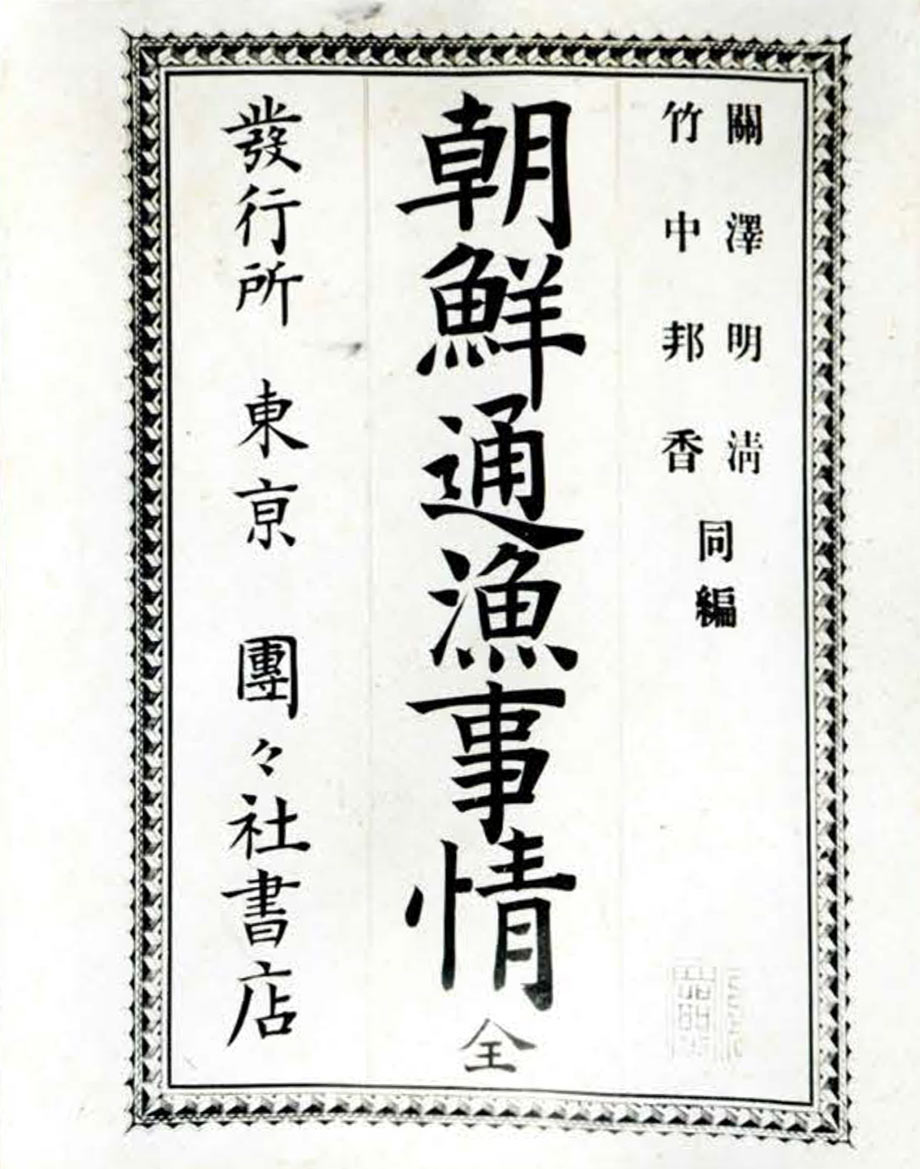 關澤明清
竹中邦香
同編
朝鮮通漁事情 全
發行所 東京 團々社書店